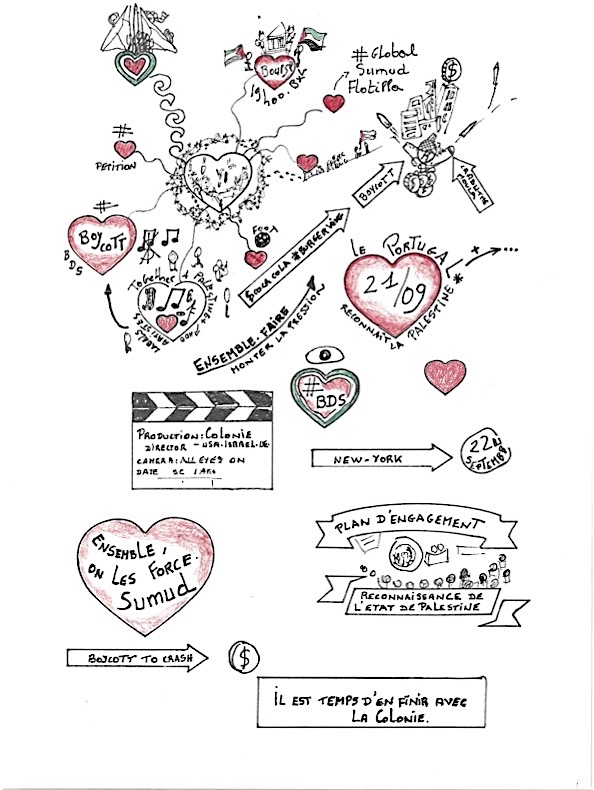 BOURSE
19h00. BXL
# Global
Sumud
Flotilla
#
PETITION
#
BOYCOTT
BDS
FOOT
Together 4 Palestine
BOYCOTT
$COCA COLA #BURGERKING
ENSEMBLE. FAIRE
MONTER LA PRESSION
LE PORTUGAL *
21/09
RECONNAIT LA PALESTINE
+
#
BDS
PRODUCTION: COLONIE
DIRECTOR - USA. ISRAEL. DE.
CAMERA: ALL EYES ON
DATE SC
NEW-YORK
22
SEPTEMBRE
ENSEMBLE,
ON LES FORCE.
Sumud
PLAN D'ENGAGEMENT
RECONNAISSANCE DE
L'ETAT DE PALESTINE
BOYCOTT TO CRASH
$
IL EST TEMPS D'EN FINIR AVEC
LA COLONIE.